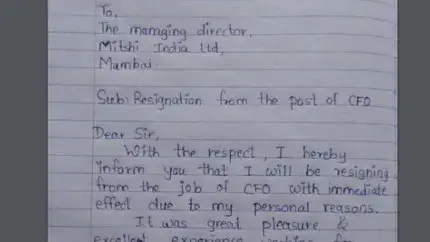 To,
The mamging director,
Mitshi India Ltd,
Mumbai.
Sub: Resignation from the post of CFO
Dear Sir,
With the respect, I hereby
inform you that I will be resigning
from the job of CFO with immediate
effect due to my personal reasons.
It was great pleasure &
excellent experience working for